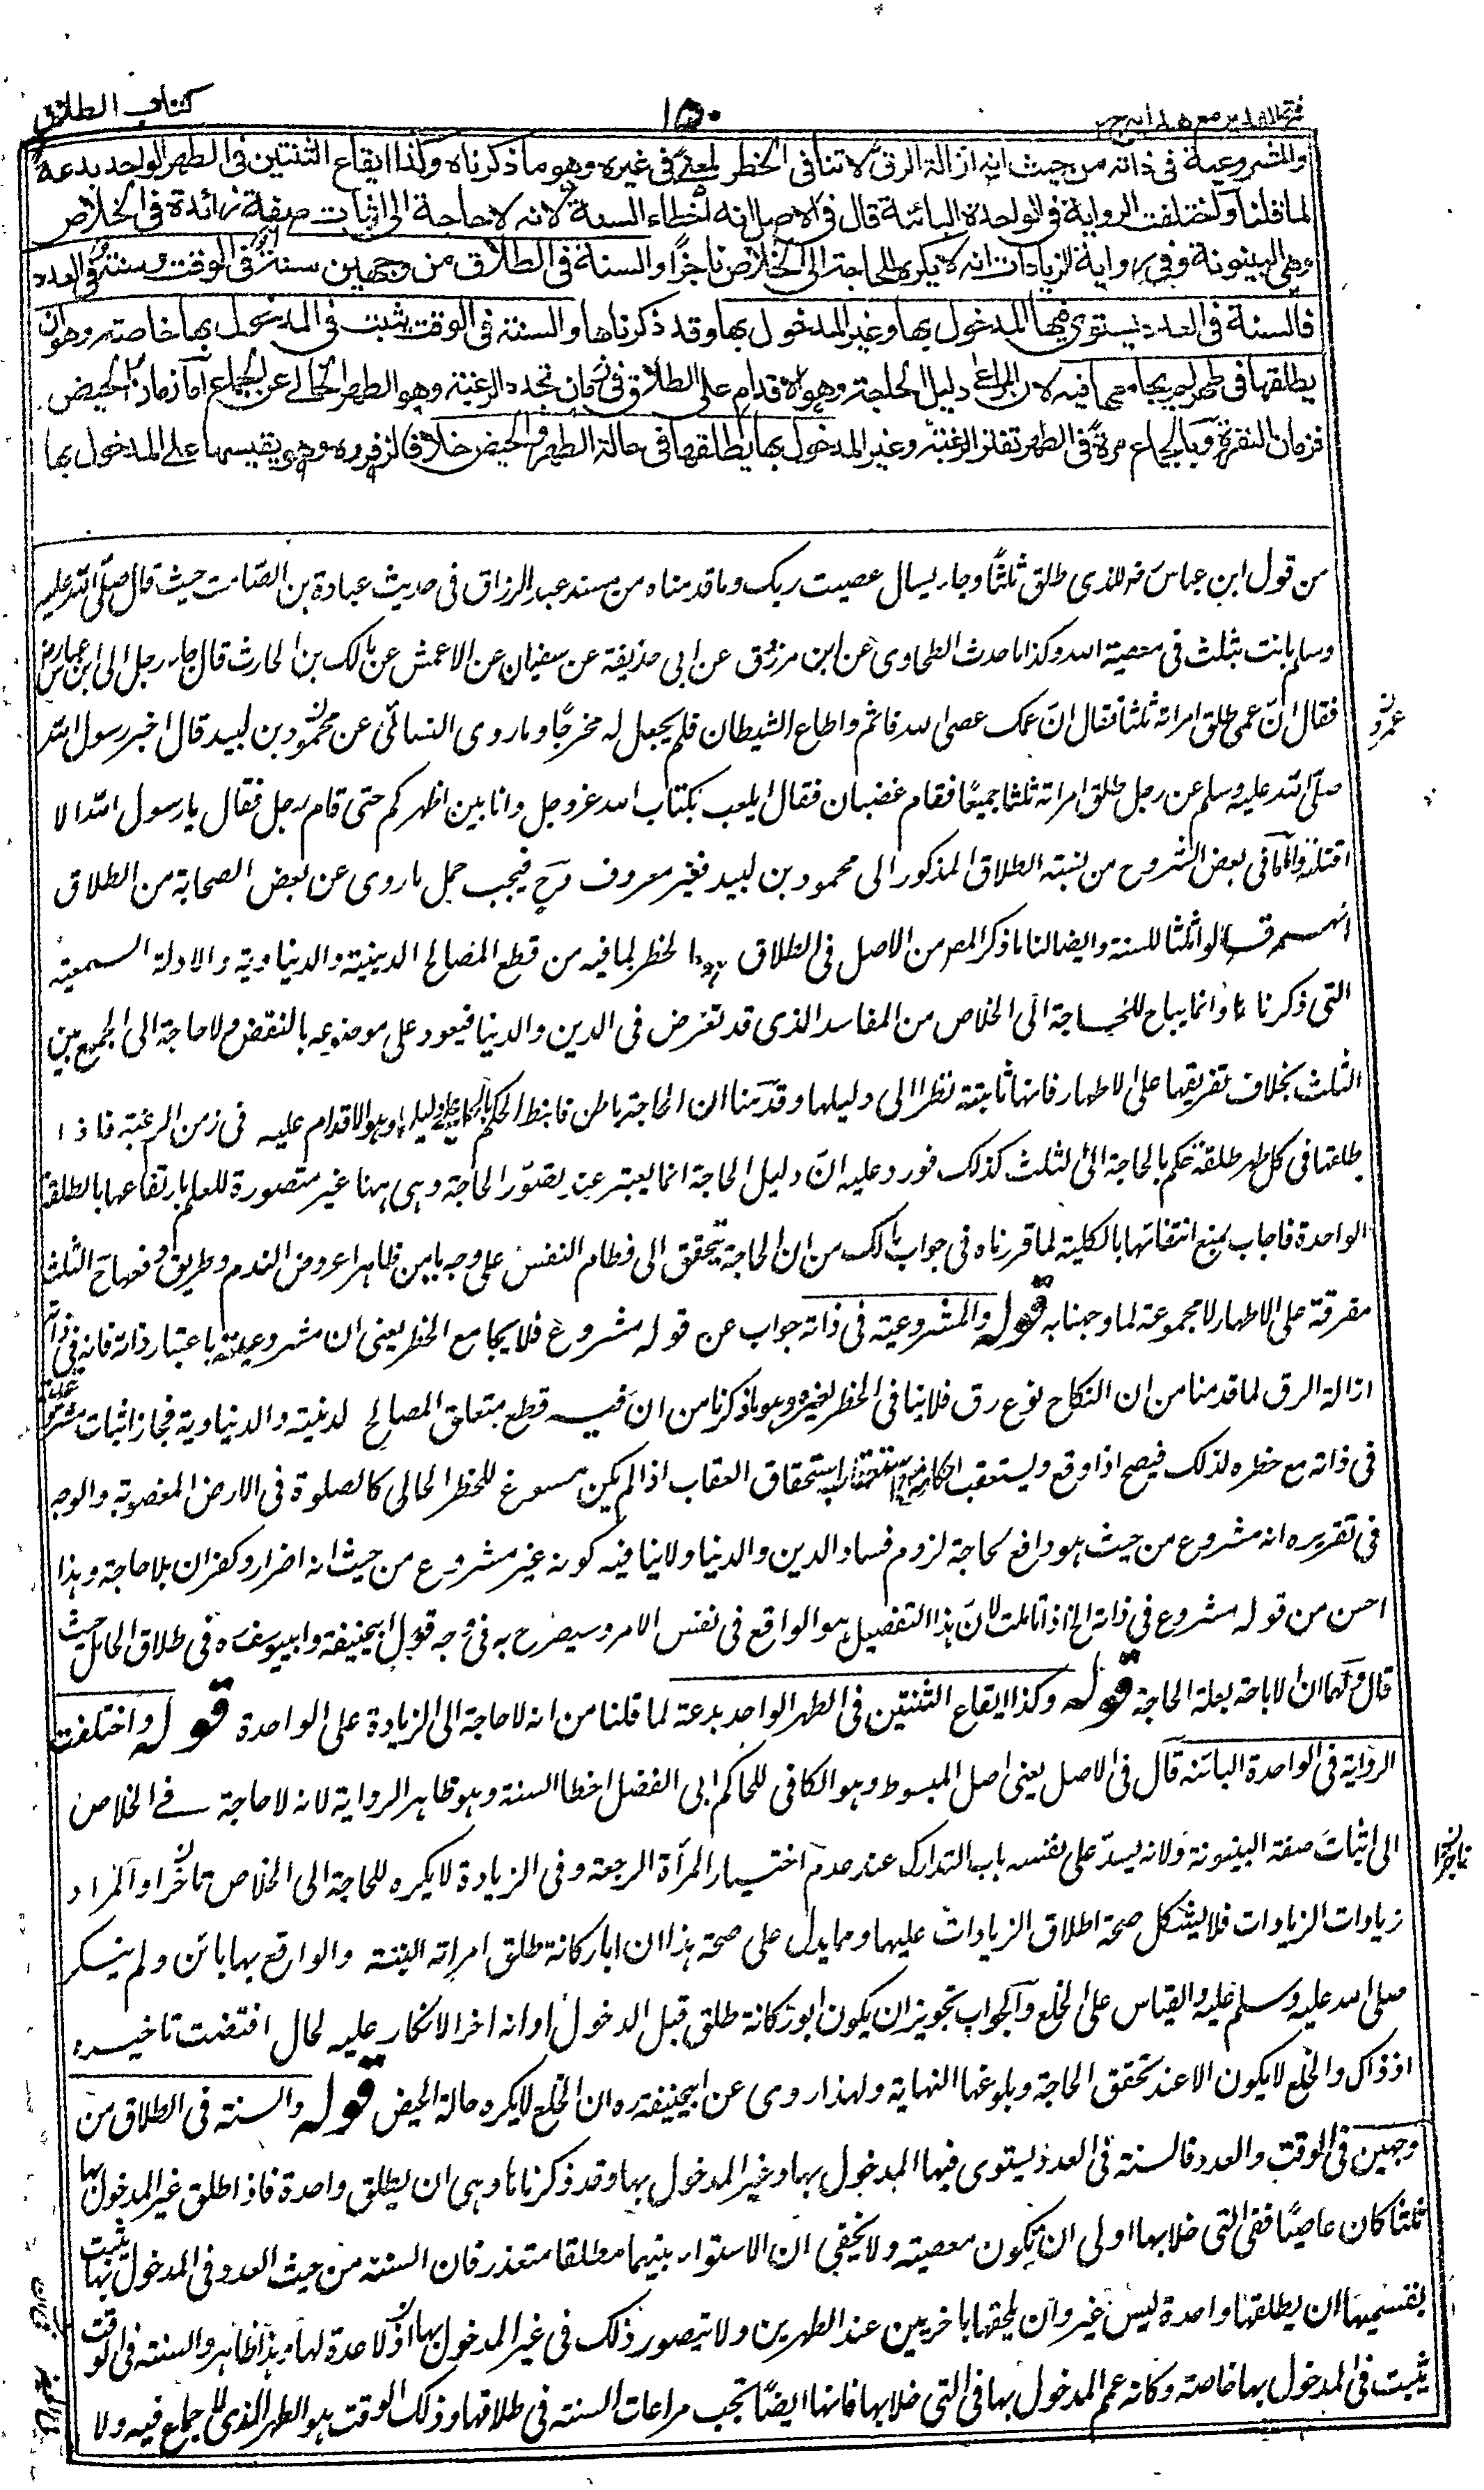 كتاب الطلاق
١٥٠
فتح القدير مع هدايه ج
والمشروعية فى ذاته من حيث انه ازالة الرق لا تنافى الحظر لمعنى فى غيره وهو ما ذكرناه وكذا ايقاع الثنتين فى الطهر الواحد بدعة
لما قلنا واختلفت الرواية فى الواحدة البائنة قال فى الاصل انه اخطاء السنة لانه لا حاجة الى اثبات صفة زائدة فى الخلاص
وهى البينونة وفى رواية الزيادات انه لا يكره للحاجة الى الخلاص ناجزًا والسنة فى الطلاق من وجهين سنة فى الوقت وسنة فى العدد
فالسنة فى العدد يستوى فيها المدخول بها وغير المدخول بها وقد ذكرناها والسنة فى الوقت يثبت فى المدخول بها خاصة وهو ان
يطلقها فى طهر لم يجامعها فيه لان المراعى دليل الحاجة وهو الاقدام على الطلاق فى زمان تجدد الرغبة وهو الطهر الخالى عن الجماع اما زمان الحيض
فزمان النفرة وبالجماع مرة فى الطهر تفتر الرغبة وغير المدخول بها يطلقها فى حالة الطهر والحيض خلافا لزفر ره وهو يقيسها على المدخول بها
من قول ابن عباس رض للذى طلق ثلثًا وجاء يسال عصيت ربك وما قدمناه من مسند عبد الرزاق فى حديث عبادة بن الصّامت حيث قال صلّى الله عليه
وسلم بانت بثلث فى معصية الله وكذا ما حدث الطحاوى عن ابن مرزوق عن ابى حذيفة عن سفيان عن الاعمش عن مالك بن الحارث قال جاء رجل الى ابن عباس رض
فقال انّ عمى طلق امراته ثلثا فقال انّ عمك عصى الله فاثم واطاع الشيطان فلم يجعل له مخرجًا وما روى النسائى عن محمود بن لبيد قال اخبر رسول الله
صلّى الله عليه وسلم عن رجل طلق امراته ثلثا جميعًا فقام غضبان فقال ايلعب بكتاب الله عزوجل وانا بين اظهركم حتى قام رجل فقال يا رسول الله الا
اقتله واما ما فى بعض الشروح من نسبة الطلاق المذكور الى محمود بن لبيد فغير معروف فيجب حمل ما روى عن بعض الصحابة من الطلاق
انهم قالوا ثلثا للسنة وايضا لنا ما ذكر المصه من الاصل فى الطلاق هو الحظر لما فيه من قطع المصالح الدينية والدنياوية والادلة السمعية
التى ذكرناها وانما يباح للحاجة الى الخلاص من المفاسد الذى قد تعرض فى الدين والدنيا فيعود على موضوعه بالنقض ولا حاجة الى الجمع بين
الثلث بخلاف تفريقها على الاطهار فانها ثابتة نظرا الى دليلها وقدمنا ان الحاجة باطن فانيط الحكم دليلها وهو الاقدام عليه فى زمن الرغبة فاذا
طلقها فى كل طهر طلقة حكم بالحاجة الى الثلث كذلك فورد عليه انّ دليل الحاجة انما يعتبر عند تصوّر الحاجة وهى ههنا غير متصورة للعلم بارتفاعها بالطلقة
الواحدة فاجاب بمنع انتفائها بالكلية لما قررناه فى جواب مالك من ان الحاجة يتحقق الى فطام النفس على وجه يامن ظاهرا عروض الندم وطريق دفعها ح الثلث
مفرقة على الاطهار لا مجموعة لما وجهنا به قوله والمشروعية فى ذاته جواب عن قوله مشروع فلا يجامع الحظر يعنى ان مشروعيته باعتبار ذاته فانه فى ذاته
ازالة الرق لما قدمنا من ان النكاح نوع رق فلا ينافى الحظر لغيره وهو ما ذكرنا من ان فيه قطع متعلق المصالح الدينية والدنياوية فجاز اثبات مشروعيته
فى ذاته مع حظره لذلك فيصح اذا وقع ويستعقب احكامه استحقاق العقاب اذا لم يكن مسوغ للحظر الحالى كالصلوة فى الارض المغصوبة والوجه
فى تقريره انه مشروع من حيث هو دافع لحاجة لزوم فساد الدين والدنيا ولا ينافيه كونه غير مشروع من حيث انه اضرار وكفران بلا حاجة وهذا
احسن من قوله مشروع فى ذاته الخ اذا تاملت لانّ هذا التفصيل هو الواقع فى نفس الامر وسيصرح به فى وجه قول ابيحنيفة وابيوسف ره فى طلاق الحامل حيث
قال ولهما ان الاباحة بعلة الحاجة قوله وكذا ايقاع الثنتين فى الطهر الواحد بدعة لما قلنا من انه لا حاجة الى الزيادة على الواحدة قوله واختلفت
الرواية فى الواحدة البائنه قال فى الاصل يعنى اصل المبسوط وهو الكافى للحاكم ابى الفضل اخطا السنة وهو ظاهر الرواية لانه لا حاجة فى الخلاص
الى اثبات صفة البينونة ولانه يسدّ على نفسه باب التدارك عند عدم اختيار المرأة الرجعة وفى الزيادة لا يكره للحاجة الى الخلاص تاخّرا والمراد
زيادات الزيادات فلا يشكل صحة اطلاق الزيادات عليها ومما يدل على صحة هذا ان ابا ركانة طلق امراته البتة والواقع بها بائن ولم ينكر
صلى الله عليه وسلم عليه والقياس على الخلع والجواب تجويز ان يكون ابو ركانة طلق قبل الدخول او انه اخر الانكار عليه لحال اقتضت تاخيره
اذ ذاك والخلع لا يكون الا عند تحقق الحاجة وبلوغها النهاية ولهذا روى عن ابيحنيفة ره ان الخلع لا يكره حالة الحيض قوله والسنة فى الطلاق من
وجهين فى الوقت والعدد فالسنة فى العدد يستوى فيها المدخول بها وغير المدخول بها وقد ذكرناها وهى ان يطلق واحدة فاذا طلق غير المدخول بها
ثلثا كان عاصيًا ففى التى خلا بها اولى ان يكون معصية ولا يخفى ان الاستواء بينهما مطلقا متعذر فان السنة من حيث العدد فى المدخول بها يثبت
بقسميها ان يطلقها واحدة ليس غير وان يلحقها باخريين عند الطهرين ولا يتصور ذلك فى غير المدخول بها اذ لا عدة لها وهذا ظاهر والسنة فى الوقت
يثبت فى المدخول بها خاصة وكانه عمم المدخول بها فى التى خلا بها فانها ايضًا تجب مراعات السنة فى طلاقها وذلك الوقت هو الطهر الذى لا جماع فيه ولا